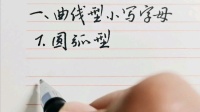 一、曲线型小写字母
1.圆弧型